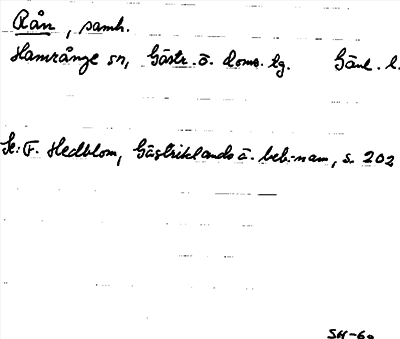 Rån, samh.
Hamrånge sn, Gästr. ö. doms. lg. Gävl. l.
Se: F. Hedblom, Gästriklands ä. beb.-namn, s. 202
SH-60